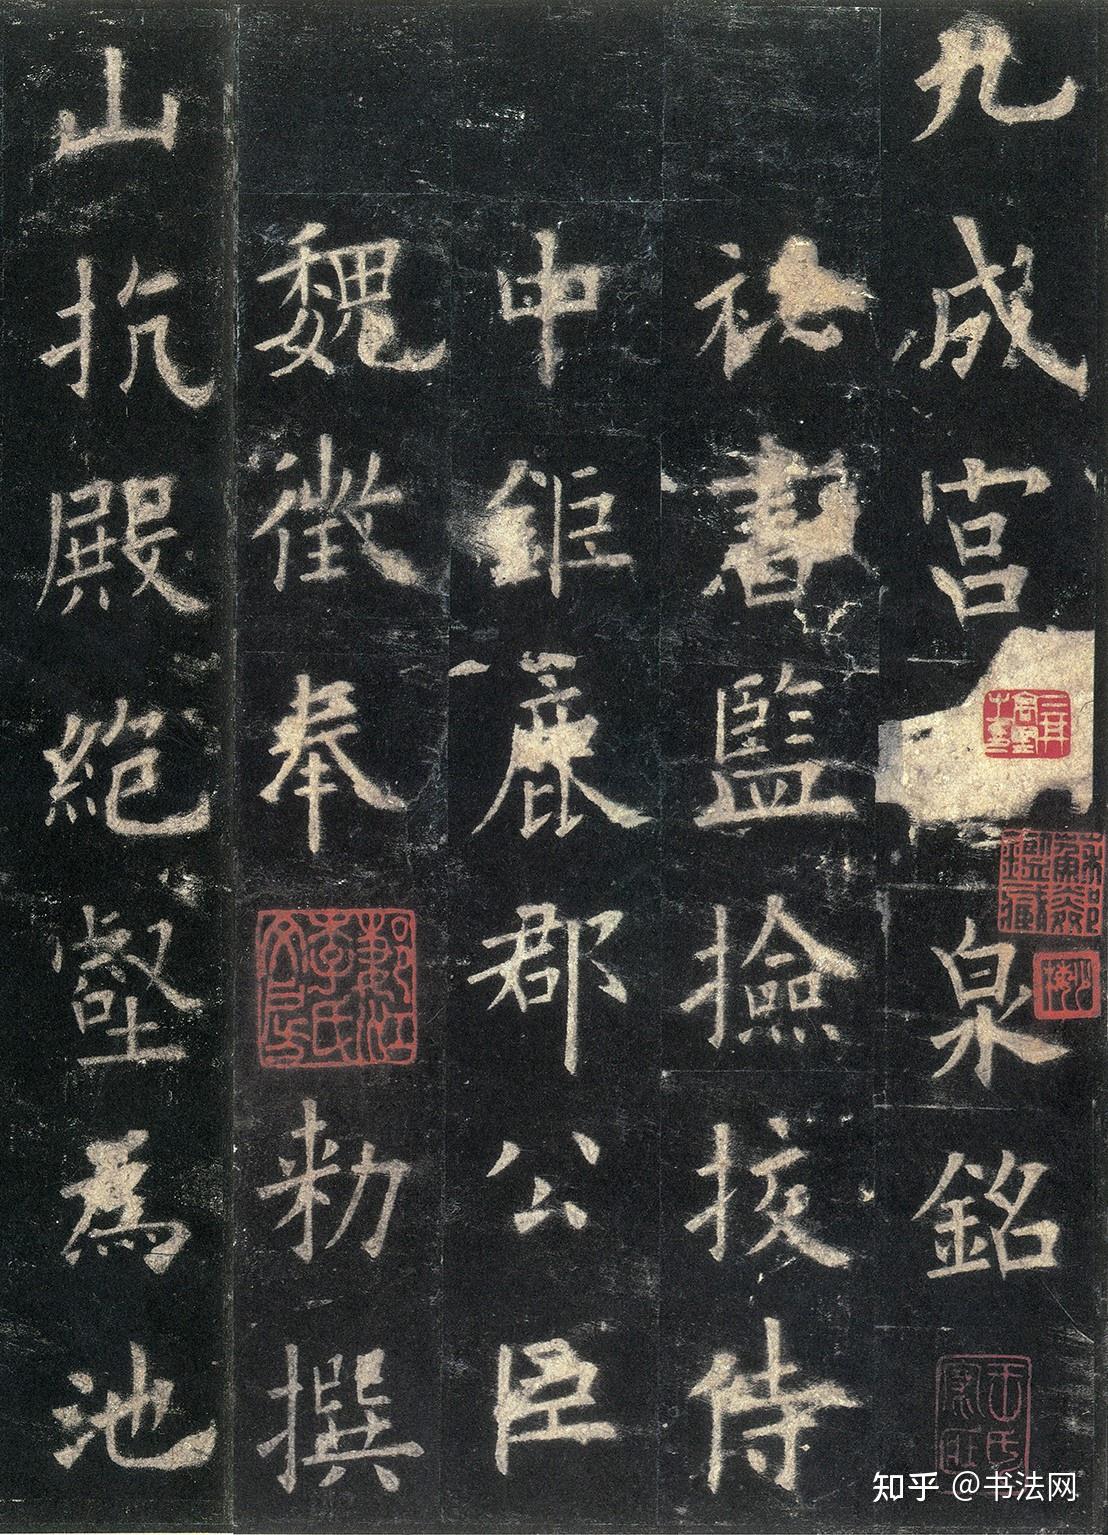 九成宮泉銘
祕書監撿挍侍
中鉅鹿郡公臣
魏徵奉勑撰
山抗殿絕壑為池
知乎 @书法网